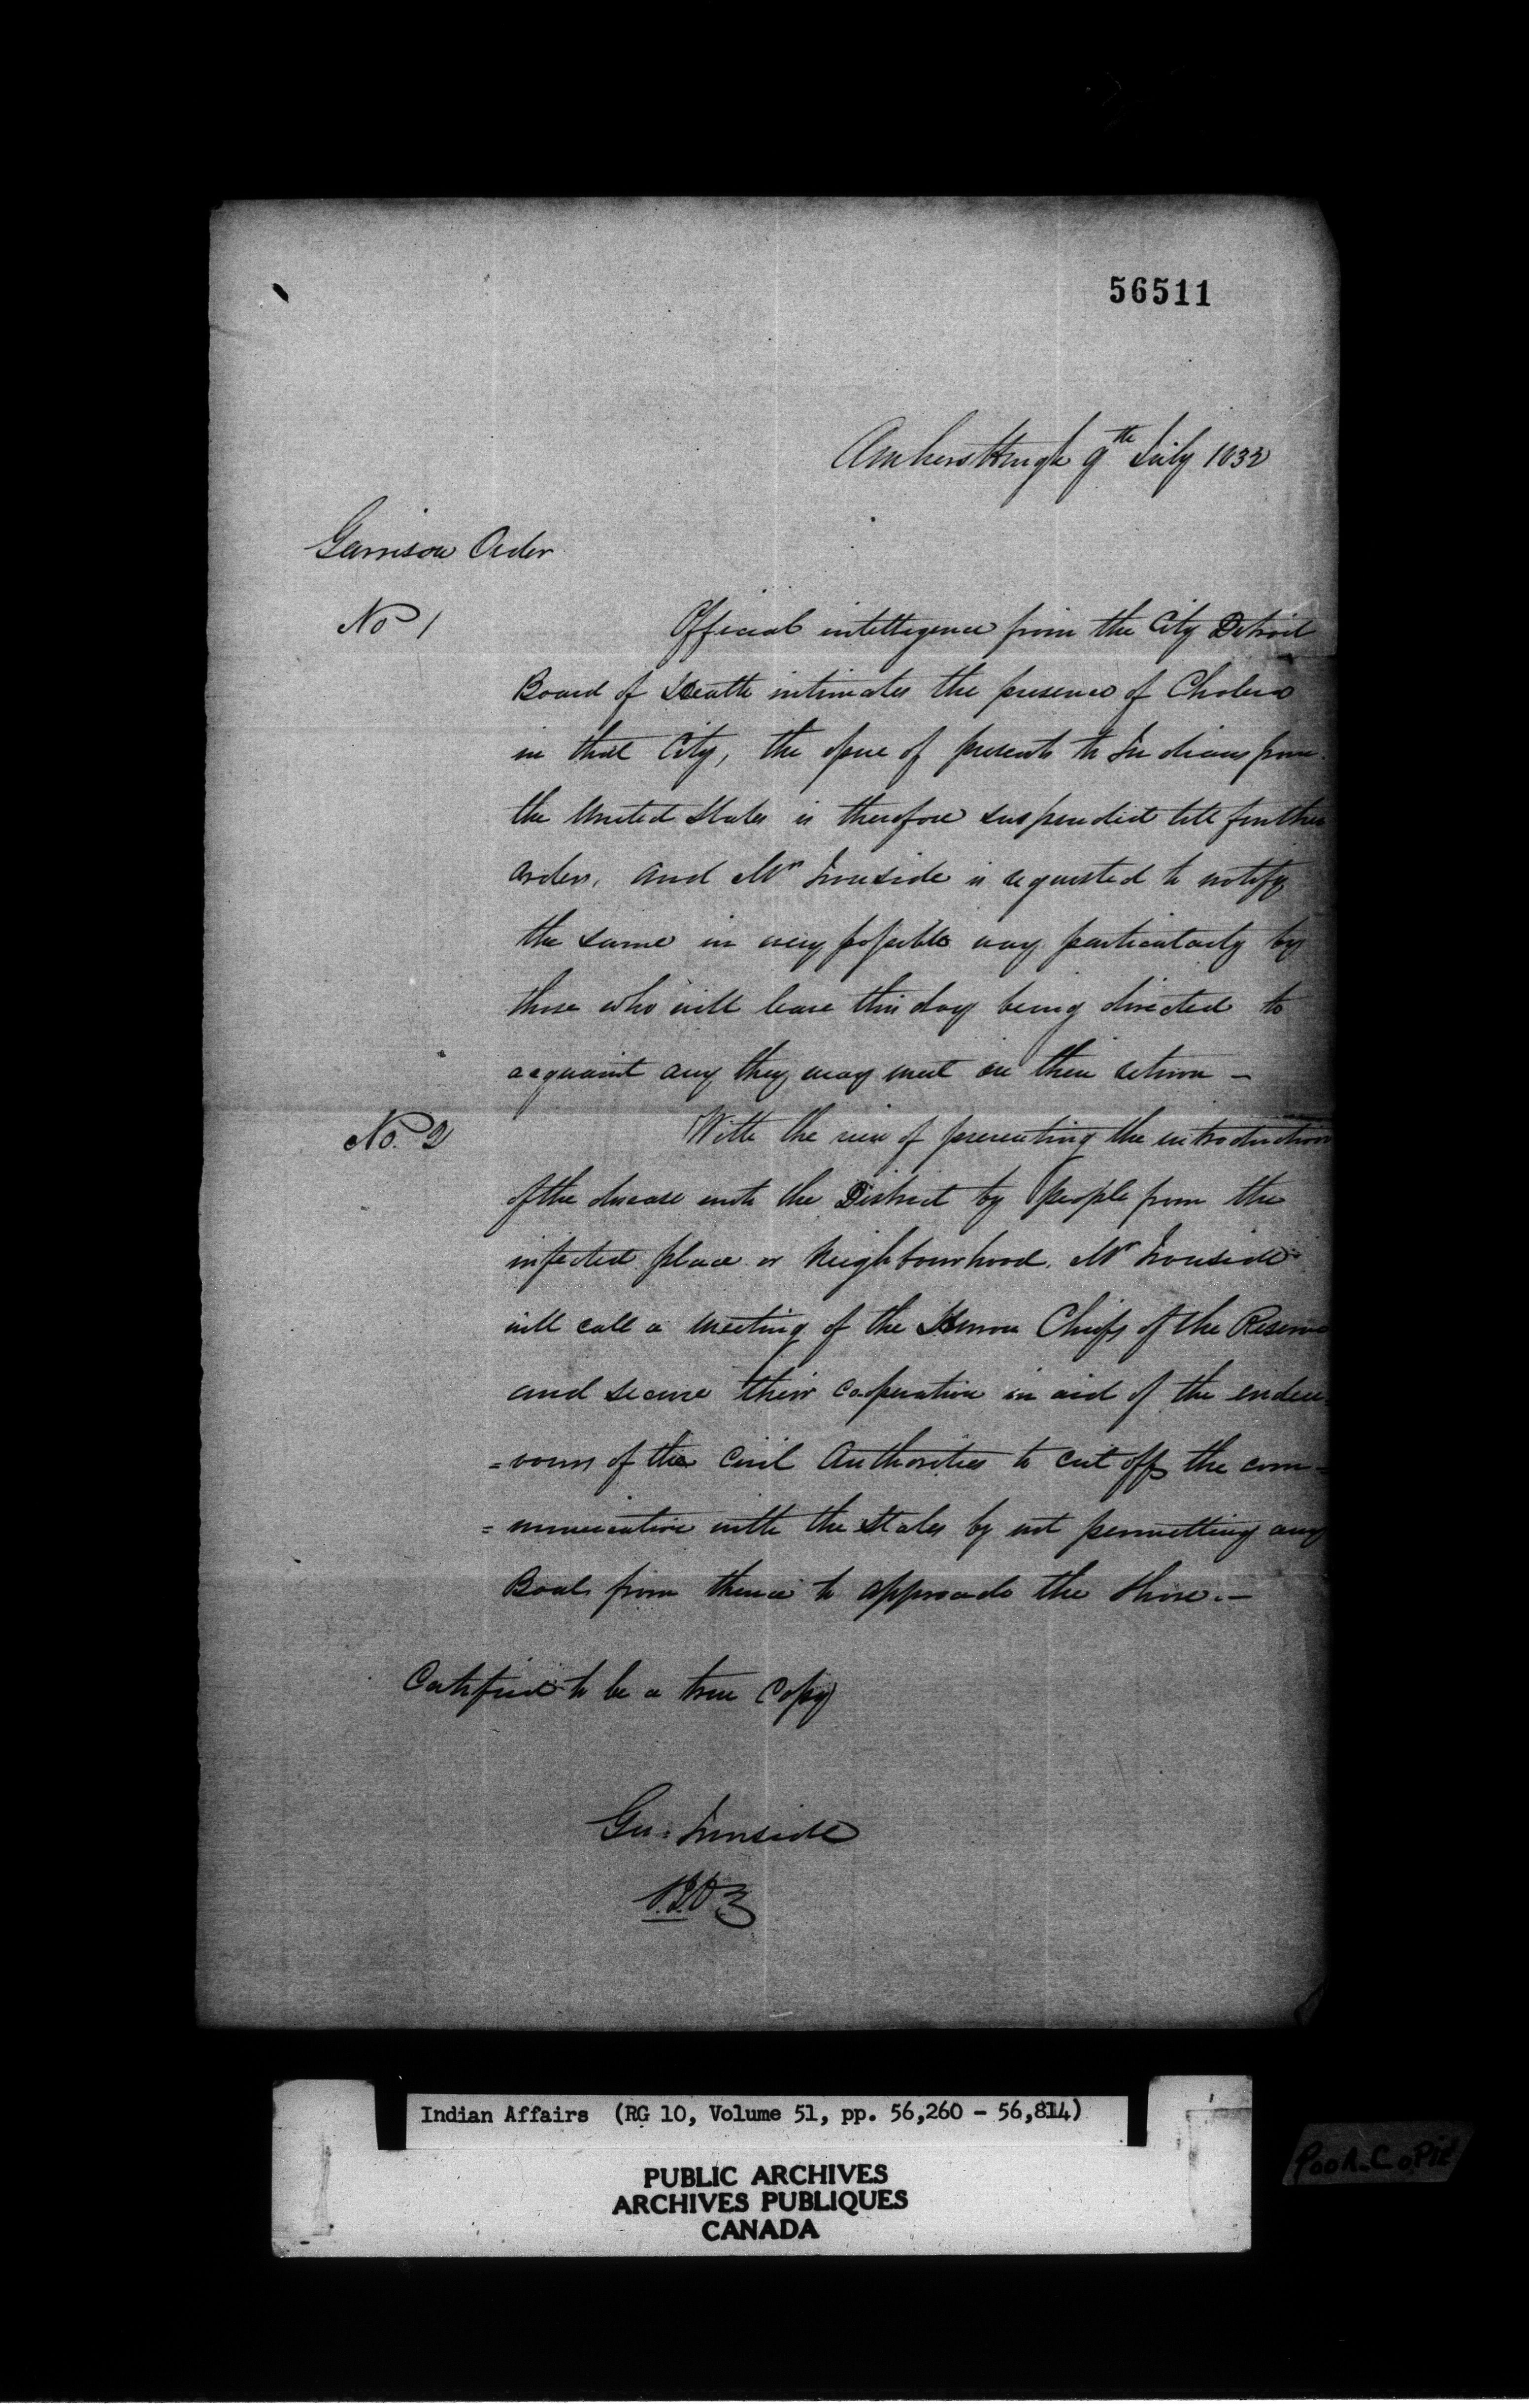 56511
Amherstburgh 9th July 1832
Garrison Order
No 1
Official intelligence from the City Detroit
Board of Health intimates the presence of Cholera
in that City, the issue of presents to Indians from
the United States is therefore suspended till further
orders, and Mr Ironside is requested to notify
the same in every possible way particularly by
those who will leave this day being directed to
acquaint any they may meet on their return —
No. 2
With the view of preventing the introduction
of the disease into the District by people from the
infected place or Neighbourhood, Mr Ironside
will call a meeting of the Huron Chiefs of the Reserve
and secure their cooperation in aid of the endea
=vours of the Civil Authorities to cut off the com=
=munication with the States by not permitting any
Boats from thence to approach the Shore.—
Certified to be a true Copy
Geo: Ironside
Indian Affairs (RG 10, Volume 51, pp. 56,260 - 56,814)
PUBLIC ARCHIVES
ARCHIVES PUBLIQUES
CANADA
Poor Copie